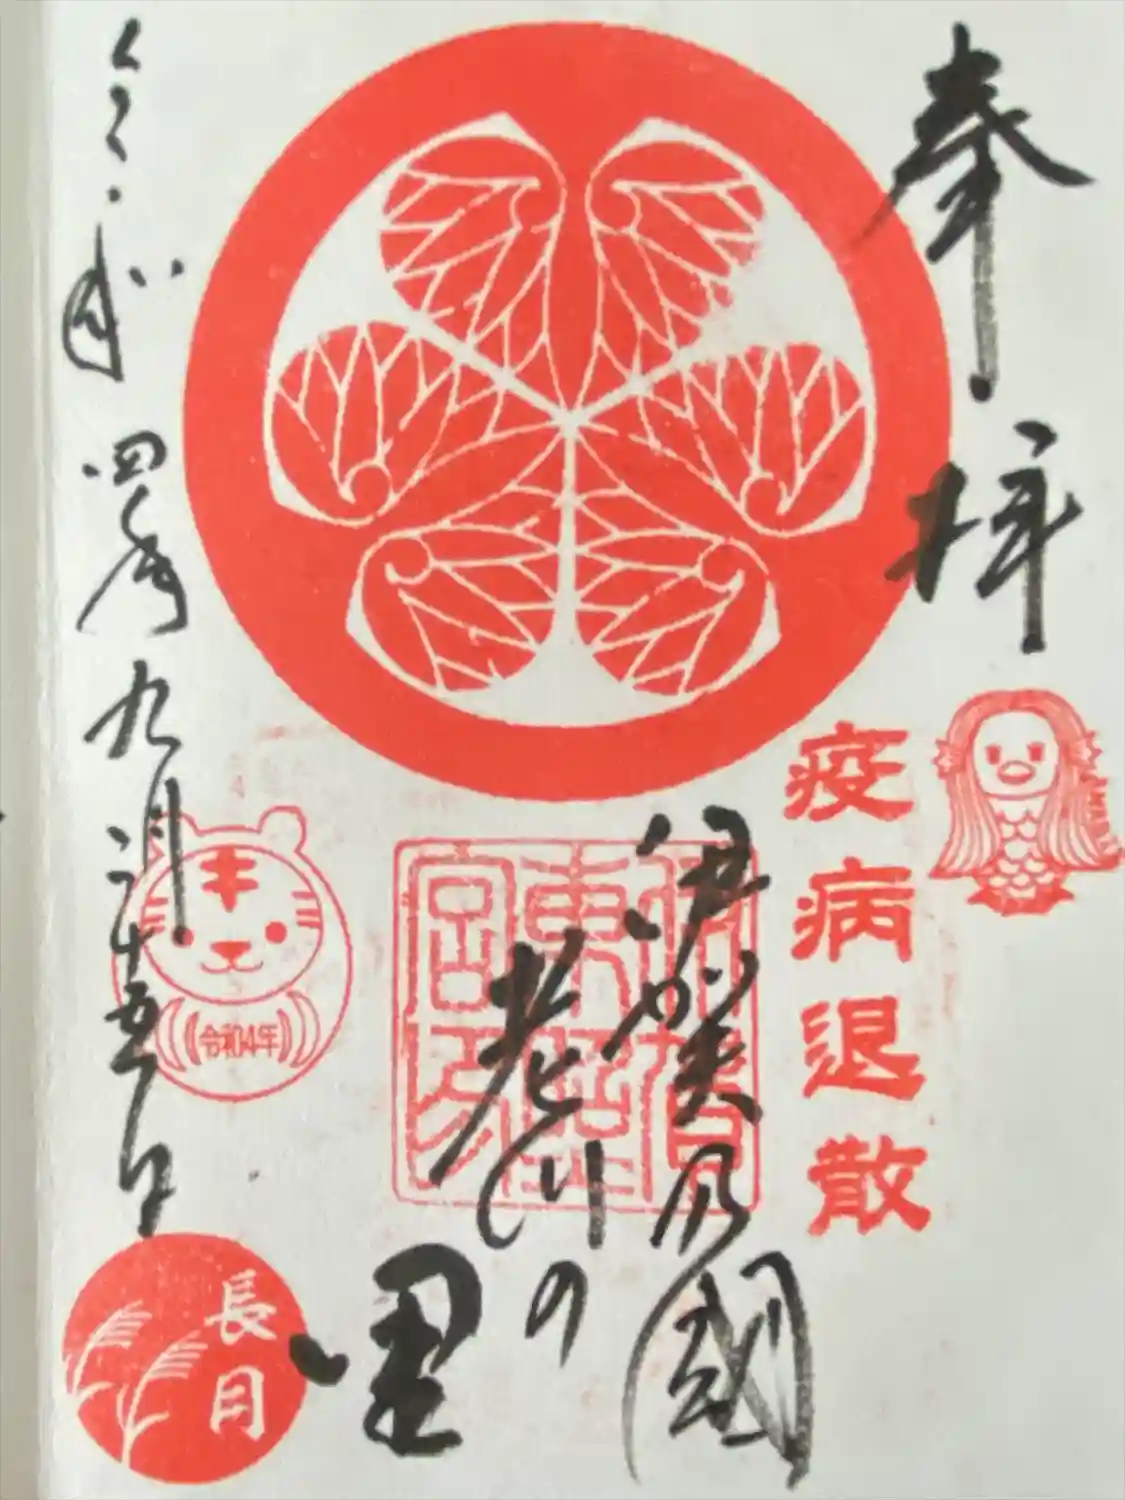 奉拝
疫病退散
伊賀乃國
老川の里
伊賀
東照
宮印
令和四年九月二十五日
令和4年
長月